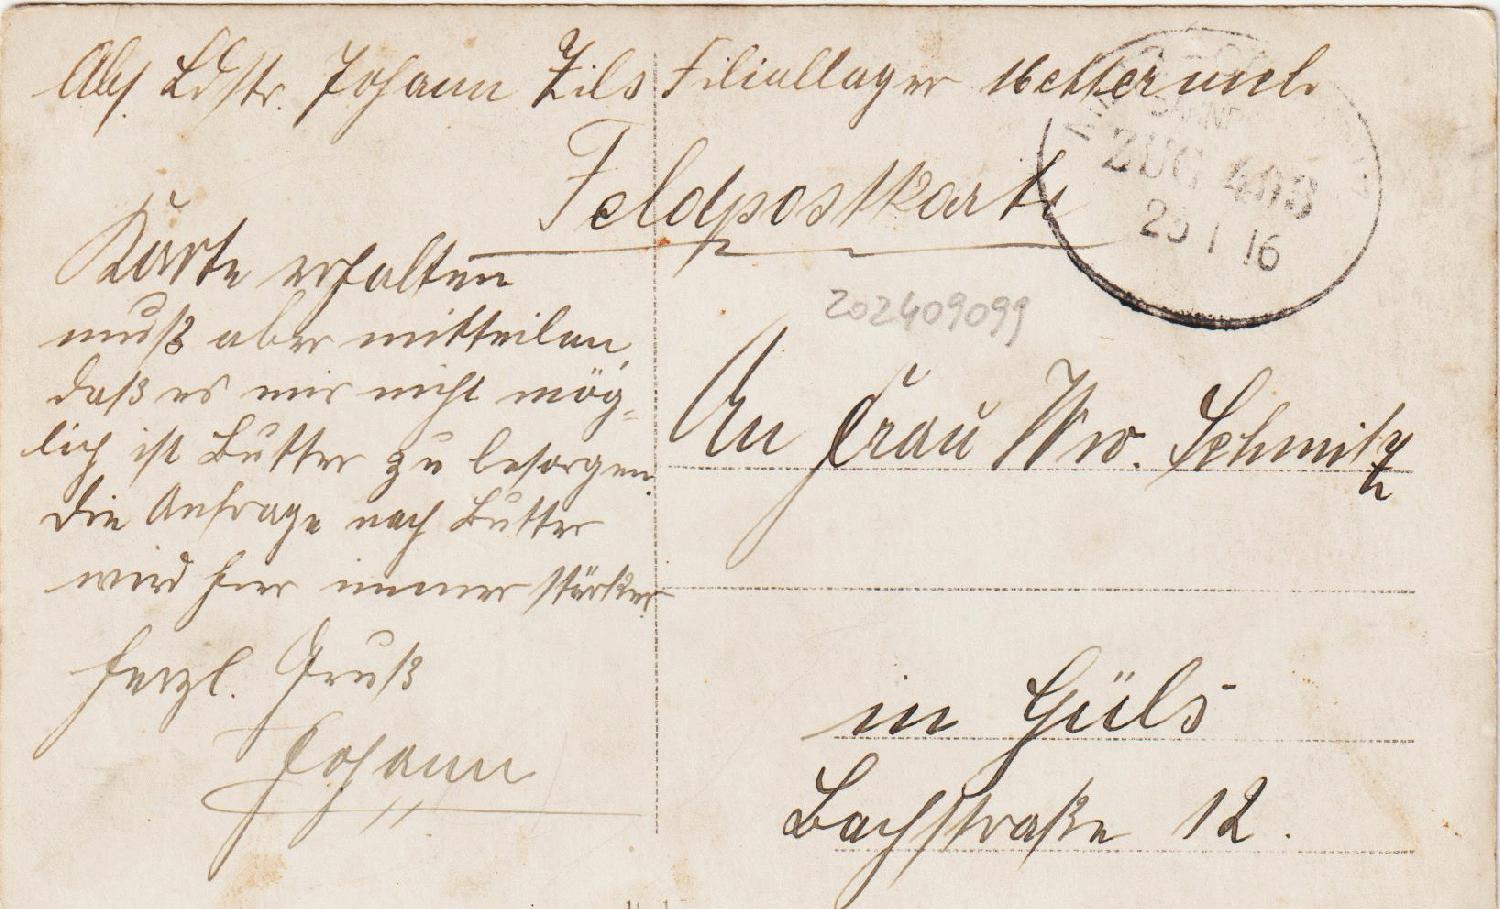 Abs. Ldstr. Johann Zils Filiallager Metternich
Feldpostkarte
ZUG 493
1 16
202409099
Karte erhalten
muß aber mitteilen,
daß es mir nicht mög-
lich ist Butter zu besorgen.
die Anfrage nach Butter
wird hier immer stärker
herzl. Gruß
Johann
An Frau Ww. Schmitz
in Güls
Bachstraße 12.